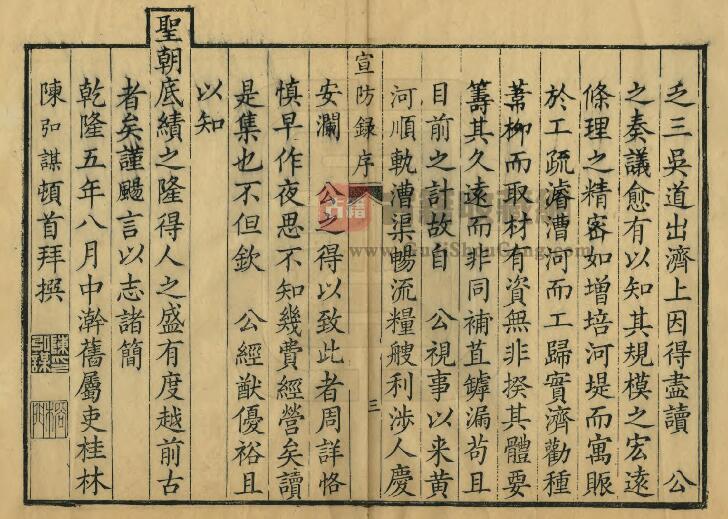 之三吳道出濟上因得盡讀　公
之奏議愈有以知其規模之宏遠
條理之精密如增培河堤而寓賑
於工疏濬漕河而工歸實濟勸種
葦柳而取材有資無非揆其體要
籌其久遠而非同補苴罅漏苟且
目前之計故自　公視事以来黄
河順軌漕渠暢流糧艘利涉人慶
宣防録序
三
安瀾　公之得以致此者周詳恪
慎早作夜思不知幾費經營矣讀
是集也不但欽　公經猷優裕且
以知
聖朝底績之隆得人之盛有度越前古
者矣謹颺言以志諸簡
乾隆五年八月中澣舊屬吏桂林
陳弘謀頓首拜撰
古籍
www.GujiShouCang.com